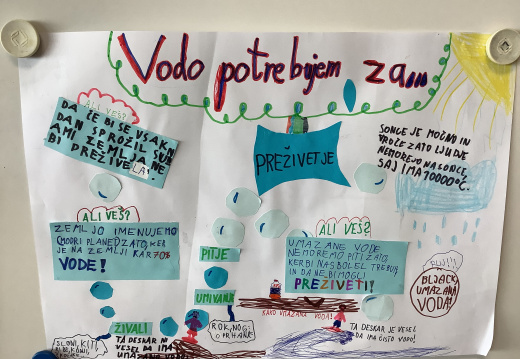 Vodo potrebujem za...
ALI VEŠ?
DA ČE BI SE VSAK
DAN SPROŽIL SUN
AMI ZEMLJA NE
BI PREŽIVELA!
PREŽIVETJE
SONCE JE MOČNO IN
VROČE ZATO LJUDJE
NEMOREJO NA SONCE,
SAJ IMA 10000°C.
ALI VEŠ?
ZEMLJO IMENUJEMO
MODRI PLANED ZATO, KER
JE NA ZEMLJI KAR 70%
VODE!
PITJE
UMIVANJE
ROK, NOG
ŽIVALI
SLONI, KITI
TA DESKAR NI
VESEL DA IMA
ALI VEŠ?
UMAZANE VODE
NEMOREMO PITI ZATO,
KER BI NAS BOLEL TREBUH
IN DA NE BI MOGLI
PREŽIVETI!
KAKO UMAZANA VODA!
TA DESKAR JE VESEL
DA IMA ČISTO VODO!
FUJ!!!
BLJACK
UMAZANA
VODA!